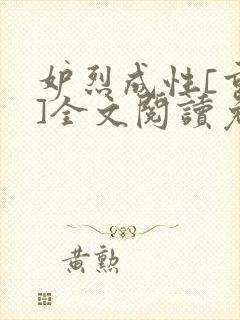 妒烈成性[重
]全文閱讀老
黃勲